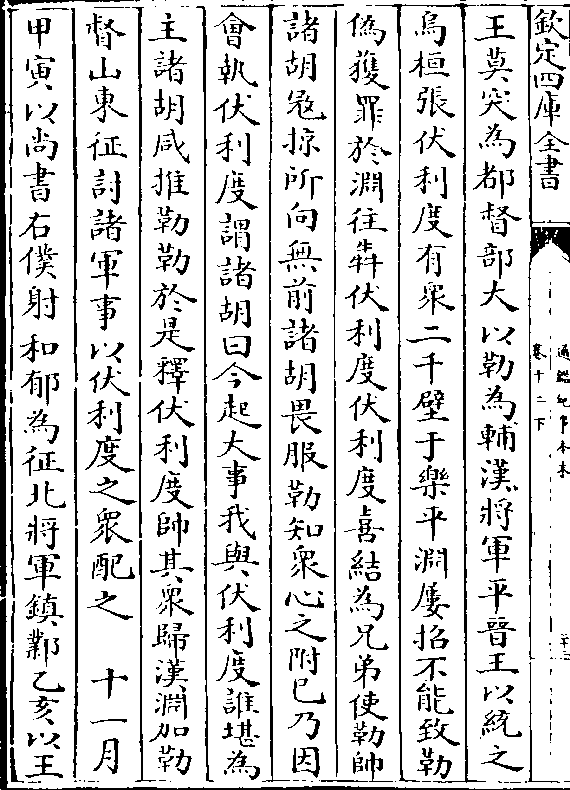 欽定四庫全書
通鑑紀事本末
卷十二下
王莫突為都督部大以勒為輔漢將軍平晉王以統之
烏桓張伏利度有衆二千壁于樂平淵屢招不能致勒
偽獲罪於淵往奔伏利度伏利度喜結為兄弟使勒帥
諸胡寇掠所向無前諸胡畏服勒知衆心之附已乃因
會執伏利度謂諸胡曰今起大事我與伏利度誰堪為
主諸胡咸推勒勒於是釋伏利度帥其衆歸漢淵加勒
督山東征討諸軍事以伏利度之衆配之　十一月
甲寅以尚書右僕射和郁為征北將軍鎮鄴乙亥以王